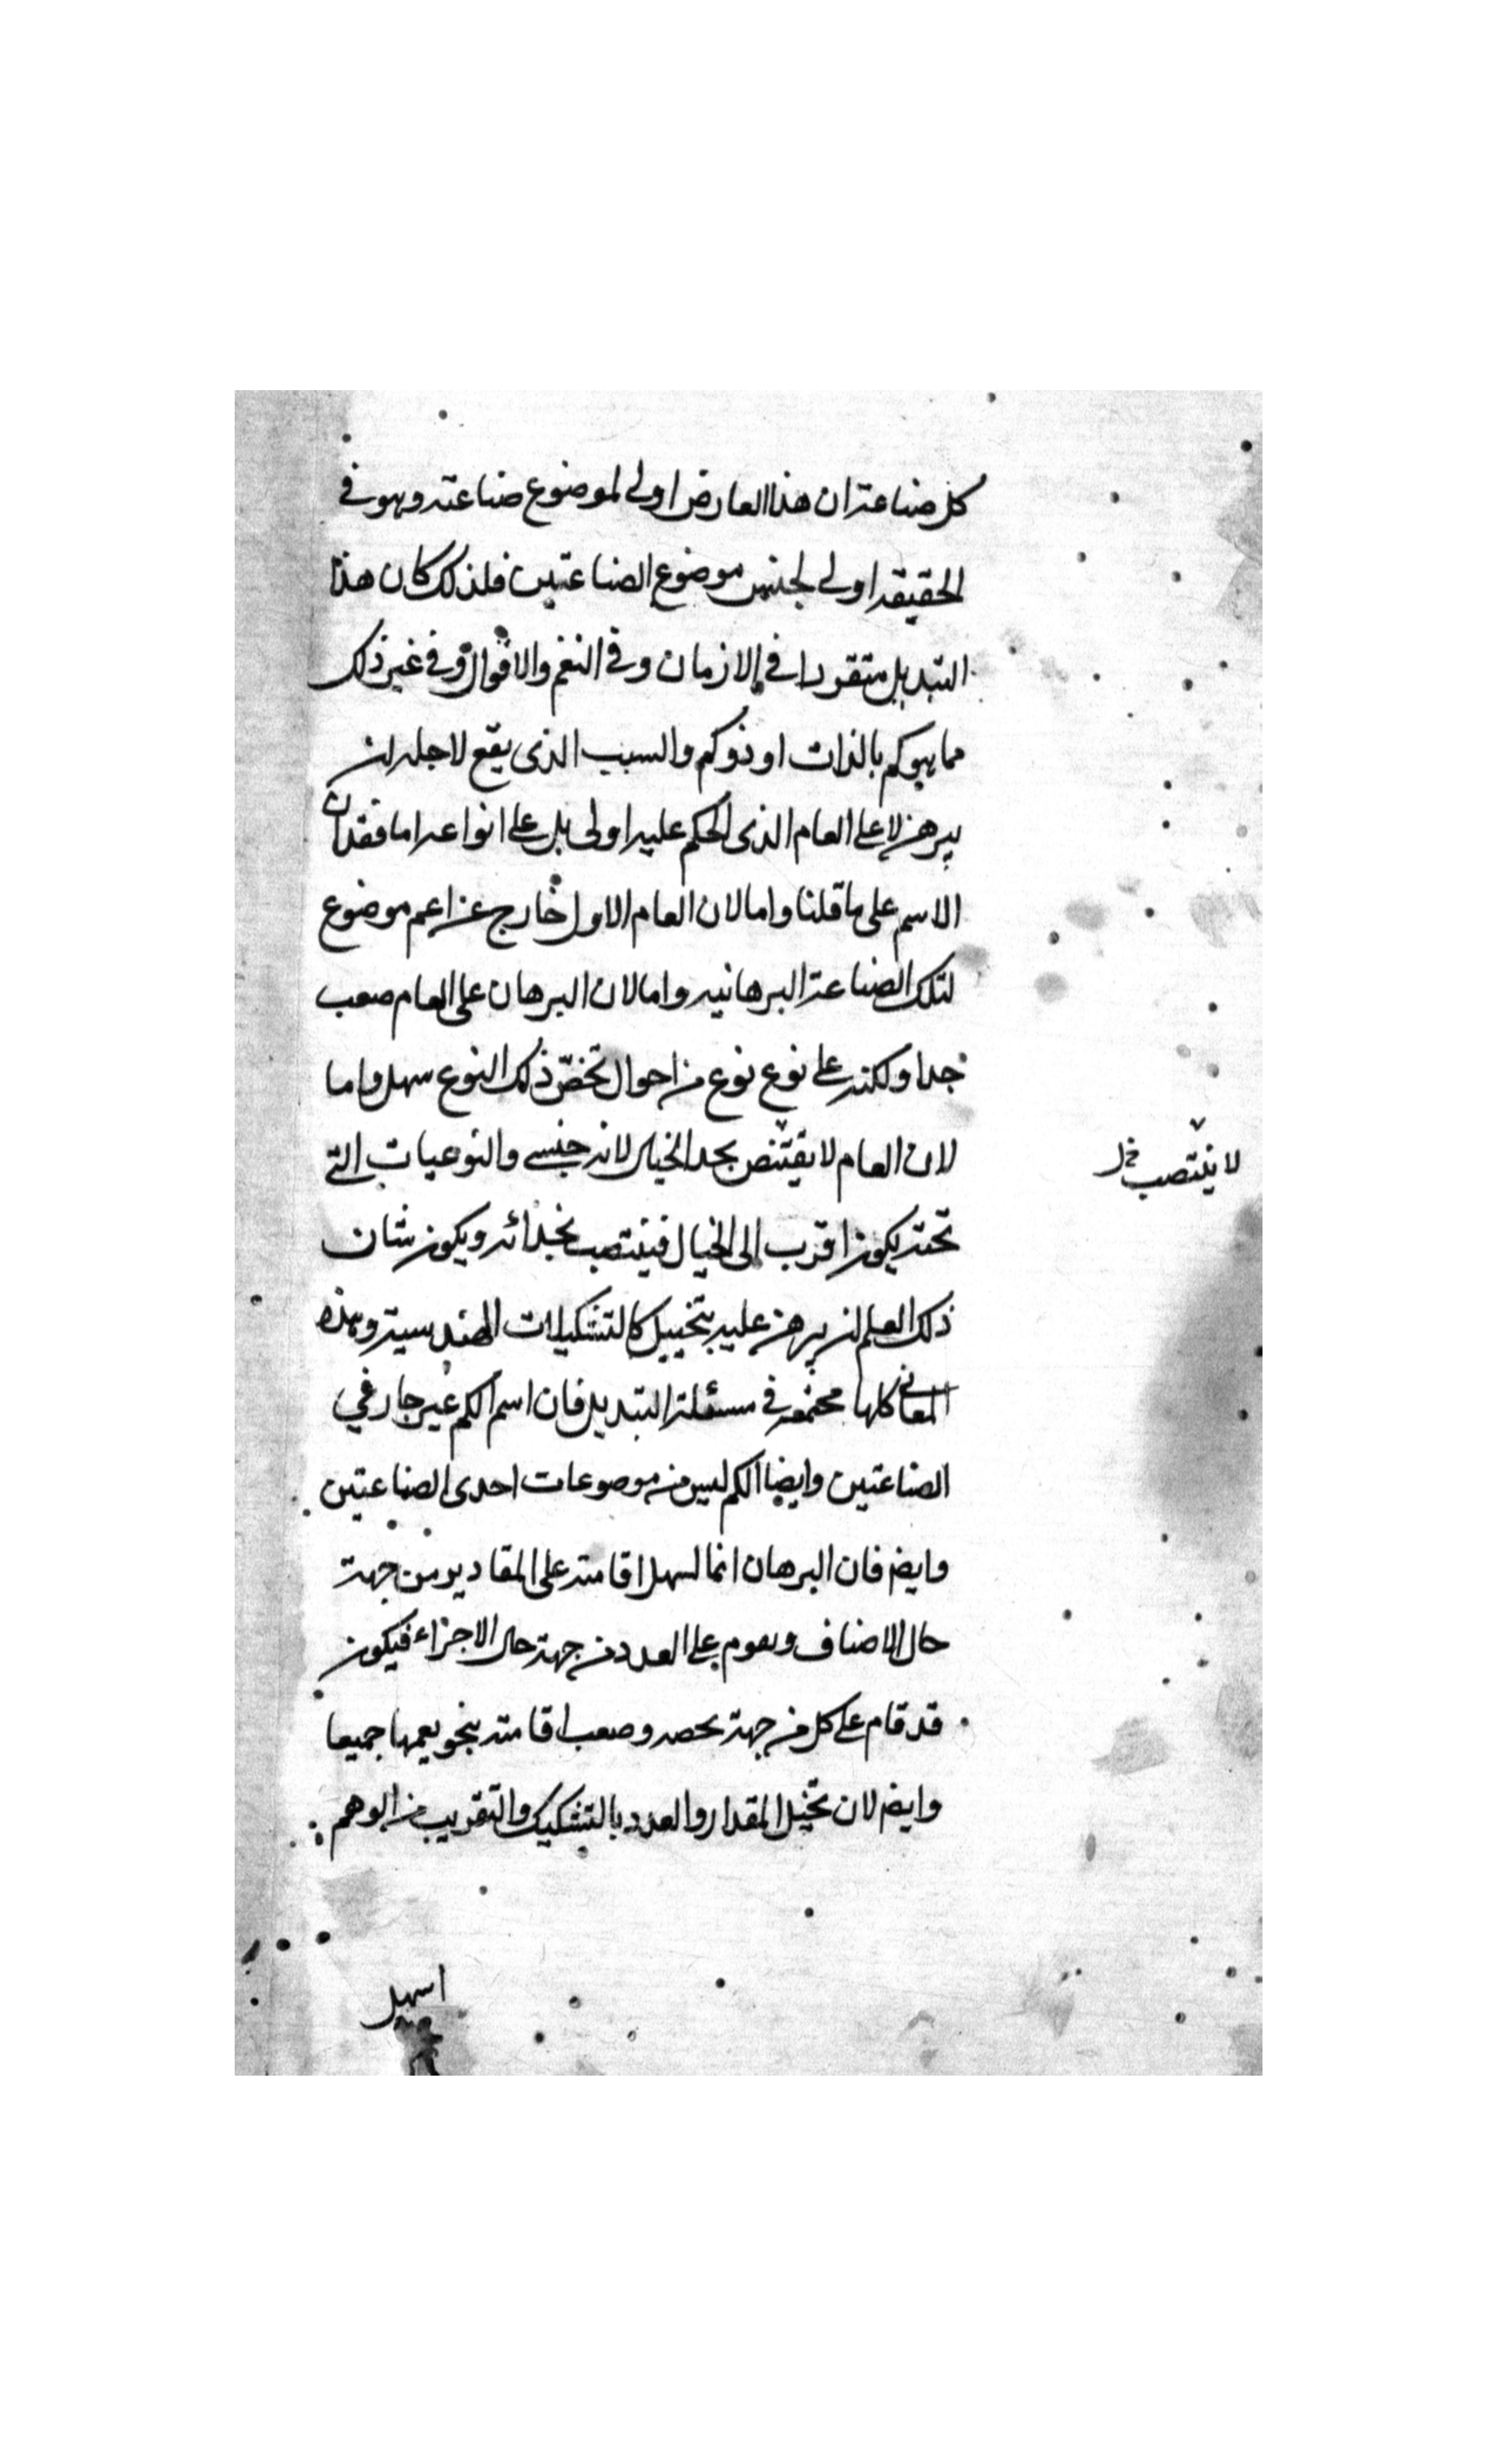 كل صناعة ان هذا العارض اولى لموضوع صناعته وهو فى
الحقيقه اولى لجنس موضوع الصناعتين فلذلك كان هذا
التبديل متقررا فى الازمان وفى النغم والاقوال وفى غير ذلك
مما هو كم بالذات او ذو كم والسبب الذى يقع لاجله ان
يبرهن لا على العام الذى الحكم عليه اولى بل على انواعه اما فقدان
الاسم على ما قلنا واما لان العام الاول خارج عن اعم موضوع
لتلك الصناعة البرهانيه واما لان البرهان على العام صعب
جدا ولكنه على نوع نوع من احوال تخصّ ذلك النوع سهل واما
لان العام لا يقتنص بحد الخيال لانه جنسي والنوعيات التى
تحته يكون اقرب الى الخيال فينتصب بحذائه ويكون شان
ذلك العلم ان يبرهن عليه بتخييل كالتشكيلات الهندسية وهذه
المعانى كلها مجتمعه فى مسئلة التبديل فان اسم الكم غير جار في
الصناعتين وايضا الكم ليس من موصوعات احدى الصناعتين
وايضا فان البرهان انما لسهل اقامته على المقادير من جهة
حال الاضناف وىعوم على العدد من جهة حال الاجزاء فيكون
قد قام على كل من جهة ىحصه وصعب اقامته بنحو يعمها جميعا
وايضا لان تخيل المقدار والعدد بالتشكيك والتقريب من الوهم
لا ينتصب
اسهل